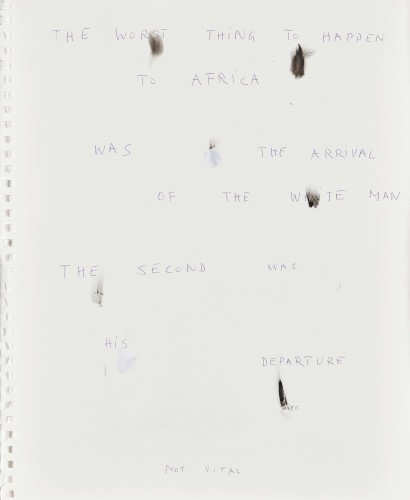 THE WORST THING TO HAPPEN
TO AFRICA
WAS THE ARRIVAL
OF THE WHITE MAN
THE SECOND WAS
HIS
DEPARTURE
NOT VITAL